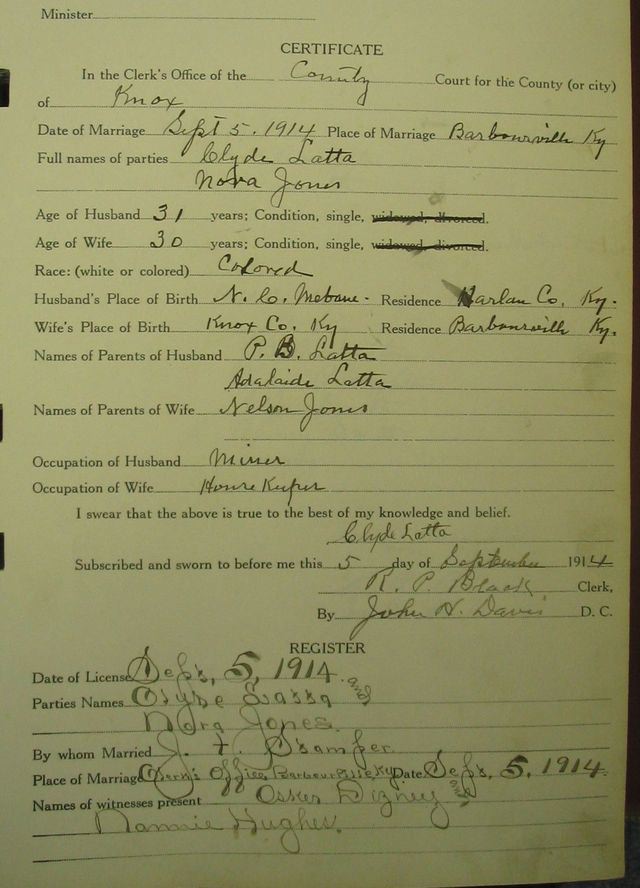 Minister
CERTIFICATE
In the Clerk's Office of the County Court for the County (or city)
of Knox
Date of Marriage Sept 5. 1914 Place of Marriage Barbourville Ky
Full names of parties Clyde Latta
Nora Jones
Age of Husband 31 years; Condition, single, widowed, divorced.
Age of Wife 30 years; Condition, single, widowed, divorced.
Race: (white or colored) Colored
Husband's Place of Birth N. C. Mebane - Residence Harlan Co. Ky.
Wife's Place of Birth Knox Co. Ky Residence Barbourville Ky.
Names of Parents of Husband P. B. Latta
Adalaide Latta
Names of Parents of Wife Nelson Jones
Occupation of Husband Miner
Occupation of Wife House Keeper
I swear that the above is true to the best of my knowledge and belief.
Clyde Latta
Subscribed and sworn to before me this 5 day of September 1914
R. P. Black Clerk,
By John H. Davis D. C.
REGISTER
Date of License Sept, 5, 1914.
Parties Names Clyde Latta and
Nora Jones.
By whom Married J. T. Stamper.
Place of Marriage Clerk's Office Barbourville Ky Date Sept, 5. 1914.
Names of witnesses present Osker Dizney and
Nannie Hughes.